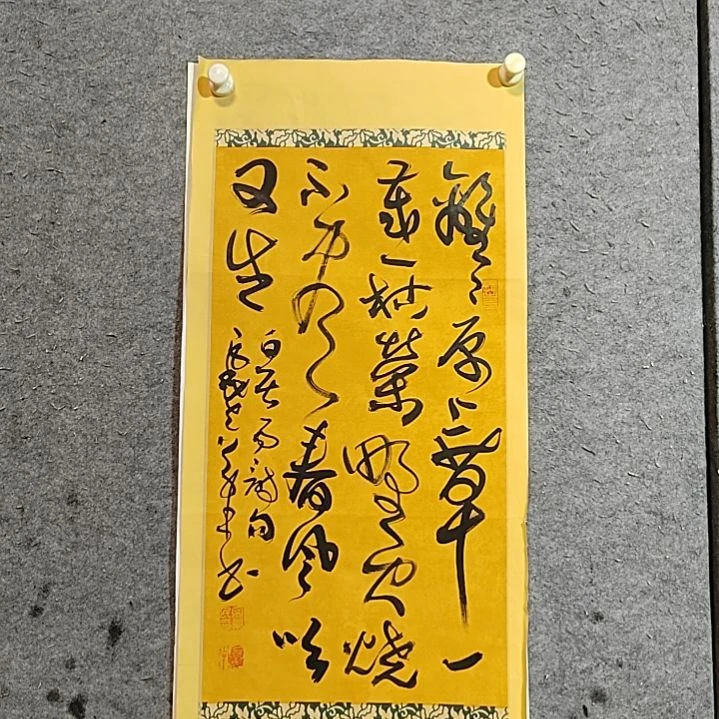 離々原上草一
歲一枯榮野火燒
不盡春風吹
又生
白居易詩句